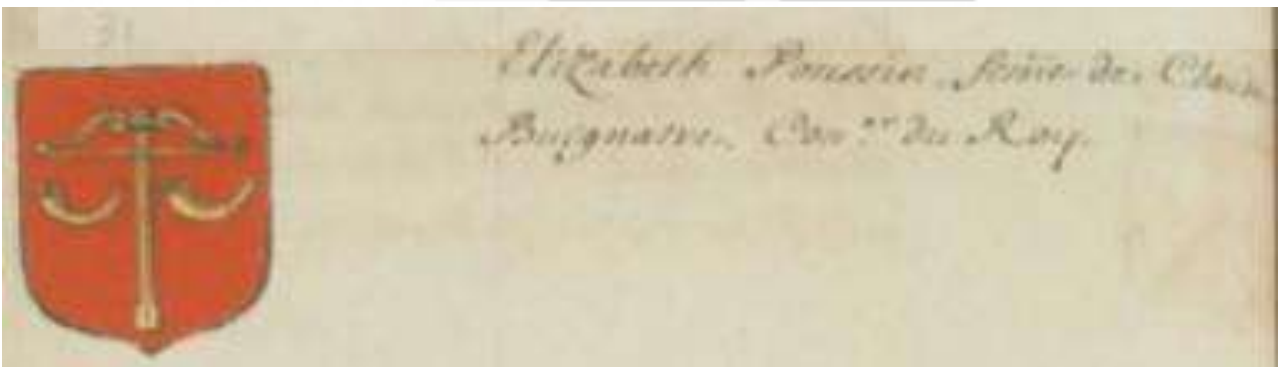 31
Elizabeth Poussin femme de Claude
Buignatre Con.er du Roy.